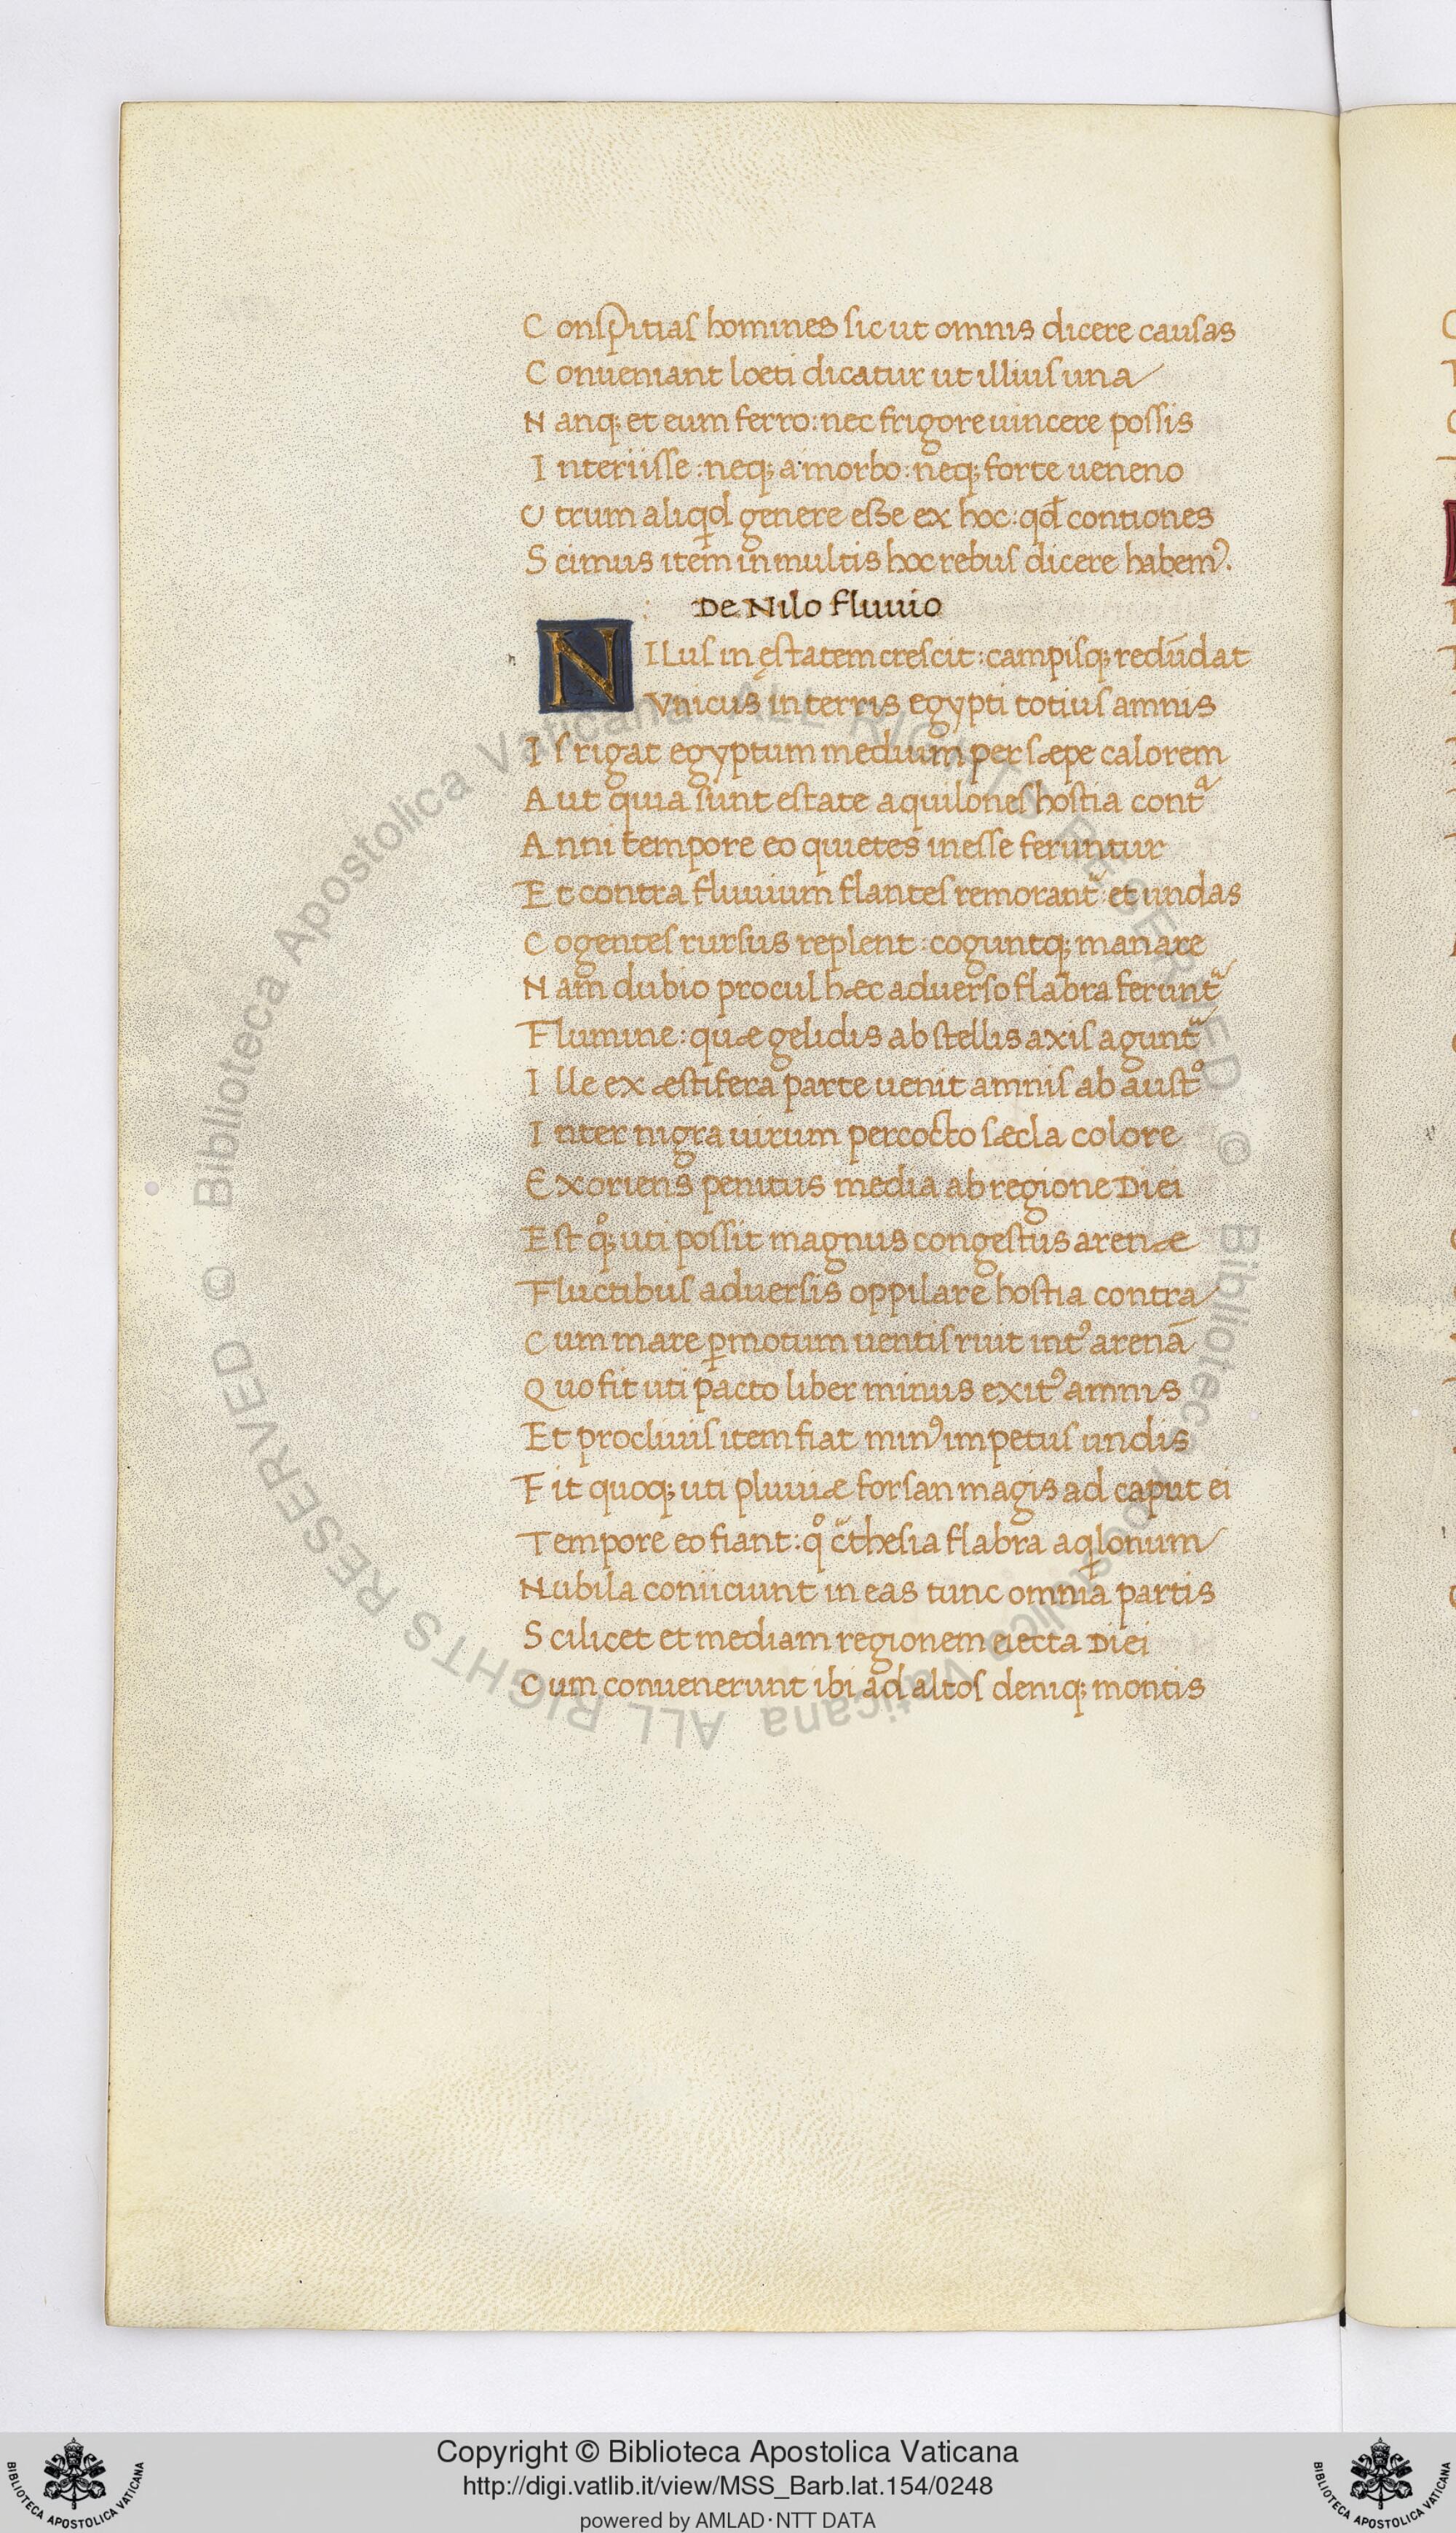 C onsꝑitias homines sic ut omnis dicere causas
C onueniant loeti dicatur ut illius una
N anq; et eum ferro: nec frigore uincere possis
I nteriisse: neq; a morbo: neq; forte ueneno
U trum aliqd genere esse ex hoc: qđ contiones
S cimus item in multis hoc rebus dicere habemꝰ.
De Nilo fluuio
NILus in ęstatem crescit: campisq; redūdat
Vnicus in terris egypti totius amnis
I s rigat egyptum medium per sæpe calorem
A ut quia sunt estate aquilones hostia contᵃ
A nni tempore eo quietes inesse feruntur
E t contra fluuium flantes remorant᷑ et undas
C ogentes rursus replent: coguntq; manare
N am dubio procul hæc aduerso flabra ferunt᷑
F lumine: quæ gelidis ab stellis axis agunt᷑
I lle ex æstifera parte uenit amnis ab austᵒ
I nter nigra uirum percocto sæcla colore
E xoriens penitus media ab regione Diei
E st qͦ; uti possit magnus congestus arenæ
F luctibus aduersis oppilare hostia contra
C um mare ꝑmotum uentis ruit intꝰ arenā
Q uo fit uti pacto liber minus exitꝰ amnis
E t procliuis item fiat minꝰ impetus undis
F it quoq; uti pluuiæ forsan magis ad caput ei
T empore eo fiant: qͦ c᷑thesia flabra aqlonum
N ubila coniiciunt in eas tunc omnia partis
S cilicet et mediam regionem eiecta Diei
C um conuenerunt ibi ad altos deniq; montis
Copyright © Biblioteca Apostolica Vaticana
http://digi.vatlib.it/view/MSS_Barb.lat.154/0248
powered by AMLAD·NTT DATA
© Biblioteca Apostolica Vaticana ALL RIGHTS RESERVED
© Biblioteca Apostolica Vaticana ALL RIGHTS RESERVED
BIBLIOTECA APOSTOLICA VATICANA
BIBLIOTECA APOSTOLICA VATICANA